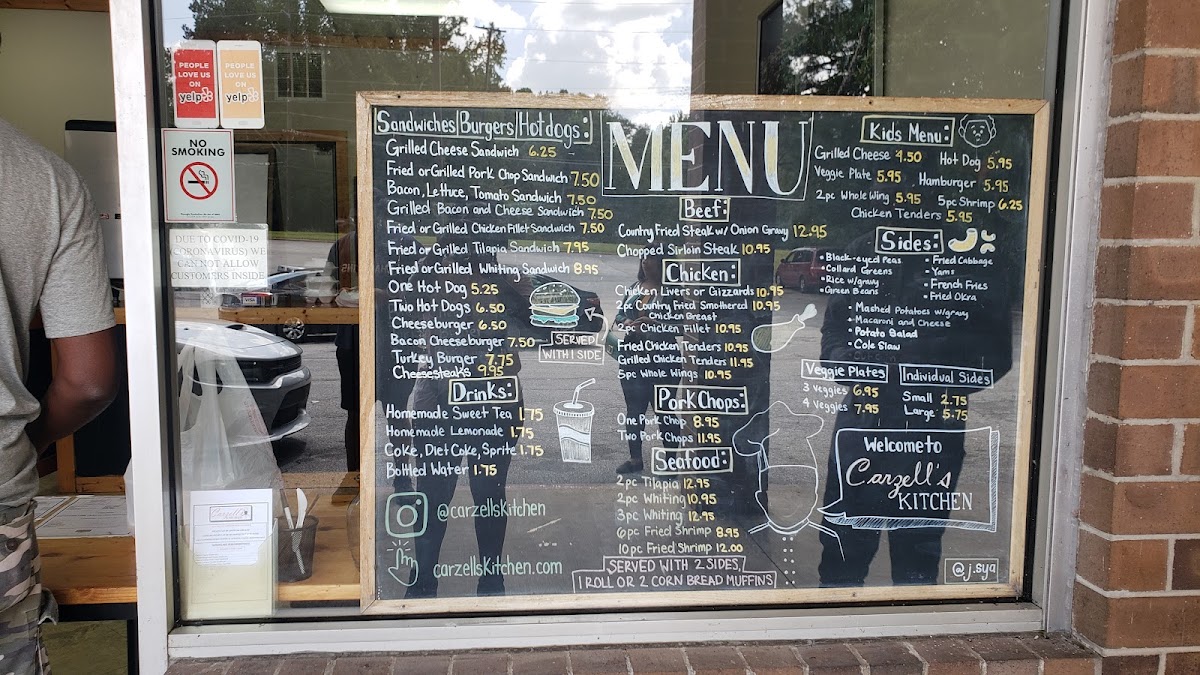 PEOPLE
LOVE US
ON
yelp
PEOPLE
LOVE US
ON
yelp
NO
SMOKING
DUE TO COVID-19
(CORONAVIRUS) WE
CAN NOT ALLOW
CUSTOMERS INSIDE
Sandwiches|Burgers|Hotdogs:
Grilled Cheese Sandwich 6.25
Fried or Grilled Pork Chop Sandwich 7.50
Bacon, Lettuce, Tomato Sandwich 7.50
Grilled Bacon and Cheese Sandwich 7.50
Fried or Grilled Chicken Fillet Sandwich 7.50
Fried or Grilled Tilapia Sandwich 7.95
Fried or Grilled Whiting Sandwich 8.95
One Hot Dog 5.25
Two Hot Dogs 6.50
Cheeseburger 6.50
Bacon Cheeseburger 7.50
Turkey Burger 7.75
Cheesesteaks 9.95
SERVED
WITH 1 SIDE
Drinks:
Homemade Sweet Tea 1.75
Homemade Lemonade 1.75
Coke, Diet Coke, Sprite 1.75
Bottled Water 1.75
@carzellsKitchen
carzellsKitchen.com
MENU
Beef:
Country Fried Steak w/ Onion Gravy 12.95
Chopped Sirloin Steak 10.95
Chicken:
Chicken Livers or Gizzards 10.95
2pc Country Fried Smothered 10.95
Chicken Breast
2pc Chicken Fillet 10.95
Fried Chicken Tenders 10.95
Grilled Chicken Tenders 11.95
5pc Whole Wings 10.95
Pork Chops:
One Pork Chop 8.95
Two Pork Chops 11.95
Seafood:
2pc Tilapia 12.95
2pc Whiting 10.95
3pc Whiting 12.95
6pc Fried Shrimp 8.95
10pc Fried Shrimp 12.00
SERVED WITH 2 SIDES,
1 ROLL OR 2 CORN BREAD MUFFINS
Kids Menu:
Grilled Cheese 4.50 Hot Dog 5.95
Veggie Plate 5.95 Hamburger 5.95
2pc Whole Wing 5.95 5pc Shrimp 6.25
Chicken Tenders 5.95
Sides:
• Black-eyed Peas • Fried Cabbage
• Collard Greens • Yams
• Rice w/gravy • French Fries
• Green Beans • Fried Okra
• Mashed Potatoes w/gravy
• Macaroni and Cheese
• Potato Salad
• Cole Slaw
Veggie Plates
3 Veggies 6.95
4 Veggies 7.95
Individual Sides
Small 2.75
Large 5.75
Welcome to
Carzell's
KITCHEN
@j.sya
Carzell's